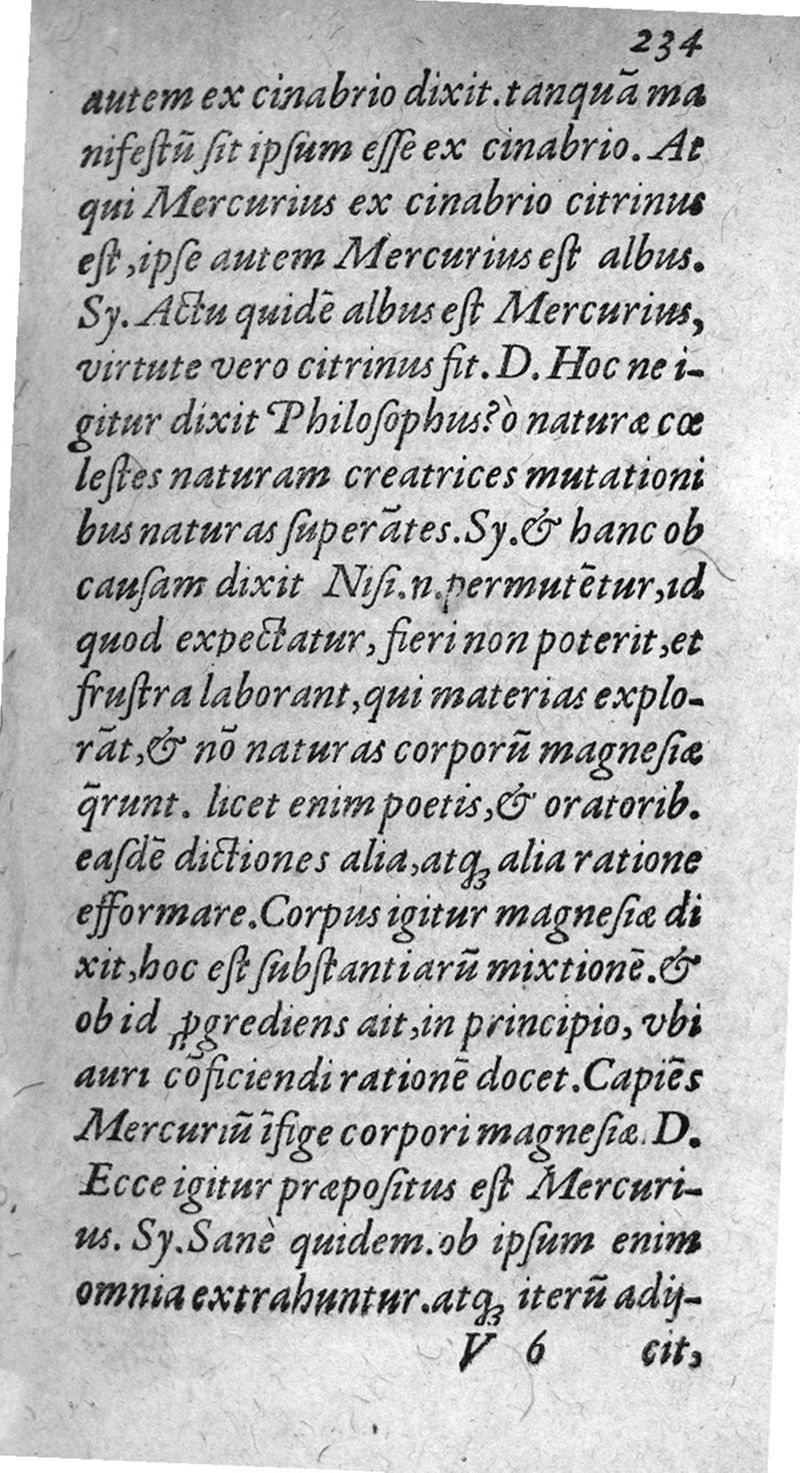 234
autem ex cinabrio dixit. tanquã ma
nifeſtũ ſit ipſum eſſe ex cinabrio. At
qui Mercurius ex cinabrio citrinus
eſt, ipſe autem Mercurius eſt albus.
Sy. Actu quidẽ albus eſt Mercurius,
virtute vero citrinus fit. D. Hoc ne i-
gitur dixit Philoſophus? ò naturæ cœ
leſtes naturam creatrices mutationi
bus naturas ſuperãtes. Sy. & hanc ob
cauſam dixit Niſi.n.permutẽtur, id
quod expectatur, fieri non poterit, et
fruſtra laborant, qui materias explo-
rãt, & nõ naturas corporũ magneſiæ
q̃runt. licet enim poetis, & oratorib.
eaſdẽ dictiones alia, atqꝫ alia ratione
efformare. Corpus igitur magneſiæ di
xit, hoc eſt ſubſtantiarũ mixtionẽ. &
ob id ꝓgrediens ait, in principio, vbi
auri cõficiendi rationẽ docet. Capiẽs
Mercuriũ ĩfige corpori magneſiæ. D.
Ecce igitur præpoſitus eſt Mercuri-
us. Sy. Sanè quidem. ob ipſum enim
omnia extrahuntur. atqꝫ iterũ adij-
V 6 cit,